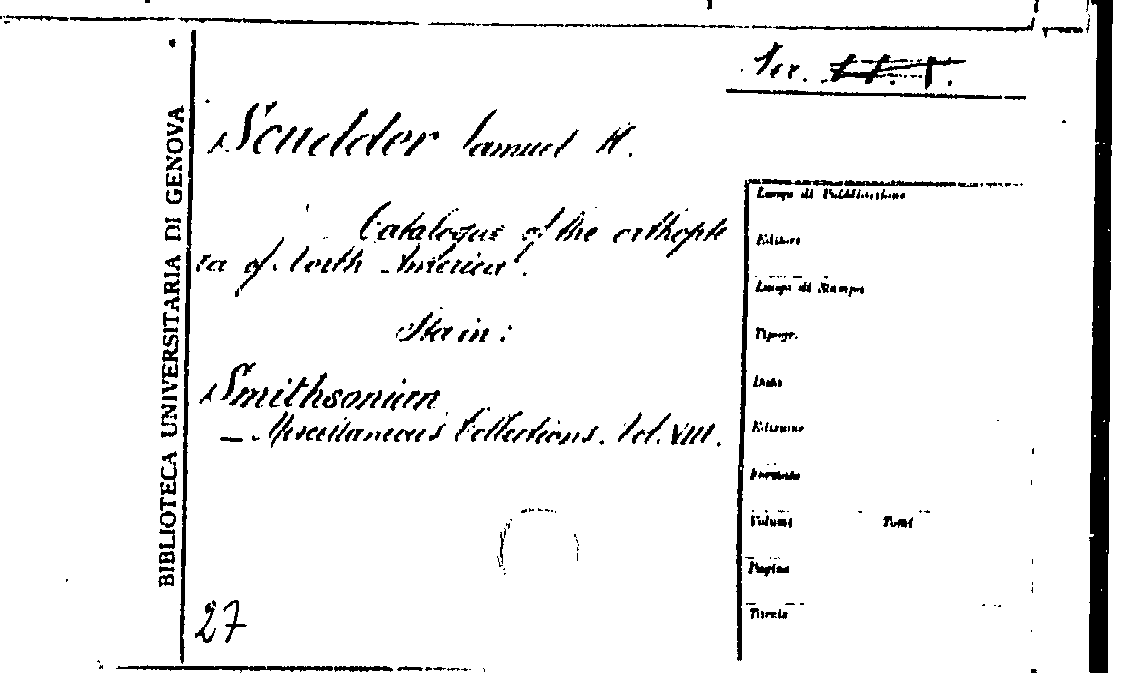 BIBLIOTECA UNIVERSITARIA DI GENOVA
Scudder Samuel H.
Catalogue of the orthopte
ra of North America.
Sta in:
Smithsonian
— Miscellaneous Collections. Vol. VIII.
27
Luogo di Pubblicazione
Editore
Luogo di Stampa
Tipogr.
Data
Edizione
Formato
Volumi Tomi
Pagine
Tavole